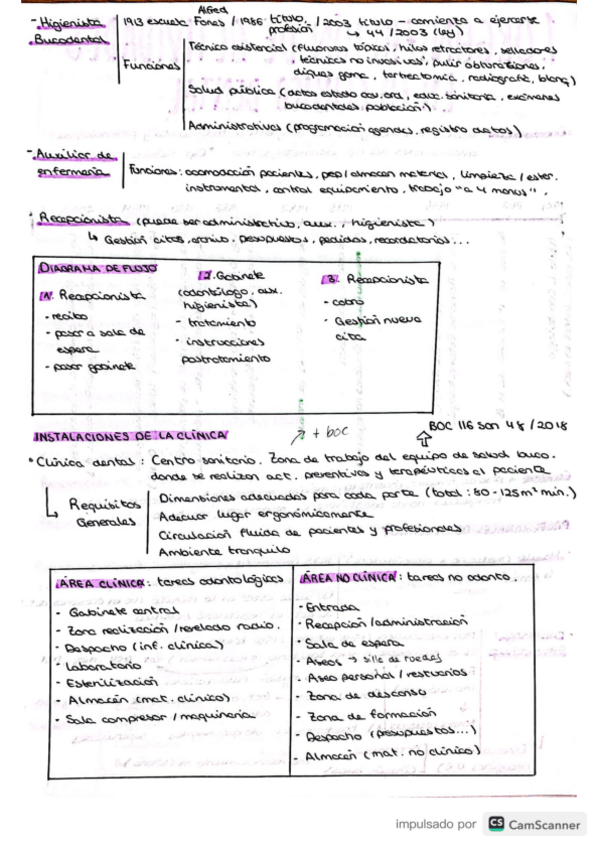 Alfred
- Higienista Bucodental | 1913 escuela Fones / 1986 título, profesión / 2003 título - comienza a ejercerse
↳ 44/2003 (ley)
Funciones
Técnico asistencial (fluoruros tópicos, hilos retractores, selladores
"técnicas no invasivas", pulir obturaciones,
diques goma, tartrectomía, radiografía, blanq)
Salud pública (datos estado cav. oral, educ. sanitaria, exámenes
bucodentales población)
Administrativas (programación agendas, registro datos)
- Auxiliar de enfermería | Funciones: acomodación pacientes, prep/almacen material, limpieza/ester.
instrumental, control equipamiento, trabajo "a 4 manos".
· Recepcionista (puede ser administrativo, aux., higienista)
↳ Gestión citas, archivo, presupuestos, pedidos, recordatorios...
DIAGRAMA DE FLUJO
1. Recepcionista
- recibo
- pasar a sala de espera
- pasar gabinete
2. Gabinete
(odontólogo, aux. higienista)
- tratamiento
- instrucciones postratamiento
3. Recepcionista
- cobro
- Gestión nueva cita
INSTALACIONES DE LA CLÍNICA
↗ + BOC
BOC 116 San 48/2018
· Clínica dental: Centro sanitario. Zona de trabajo del equipo de salud buco.
donde se realizan act. preventivas y terapéuticas al paciente
↳ Requisitos Generales
Dimensiones adecuadas para cada parte (total: 80-125m² min.)
Adecuar lugar ergonómicamente
Circulación fluida de pacientes y profesionales
Ambiente tranquilo
ÁREA CLÍNICA: tareas odontológicas
- Gabinete central
- Zona realización/revelado radio.
- Despacho (inf. clínica)
- Laboratorio
- Esterilización
- Almacén (mat. clínico)
- Sala compresor / maquinaria
ÁREA NO CLÍNICA: tareas no odonto.
- Entrada
- Recepción/administración
- Sala de espera
- Aseos → silla de ruedas
- Aseo personal / vestuarios
- Zona de descanso
- Zona de formación
- Despacho (presupuestos...)
- Almacén (mat. no clínico)
impulsado por CS CamScanner